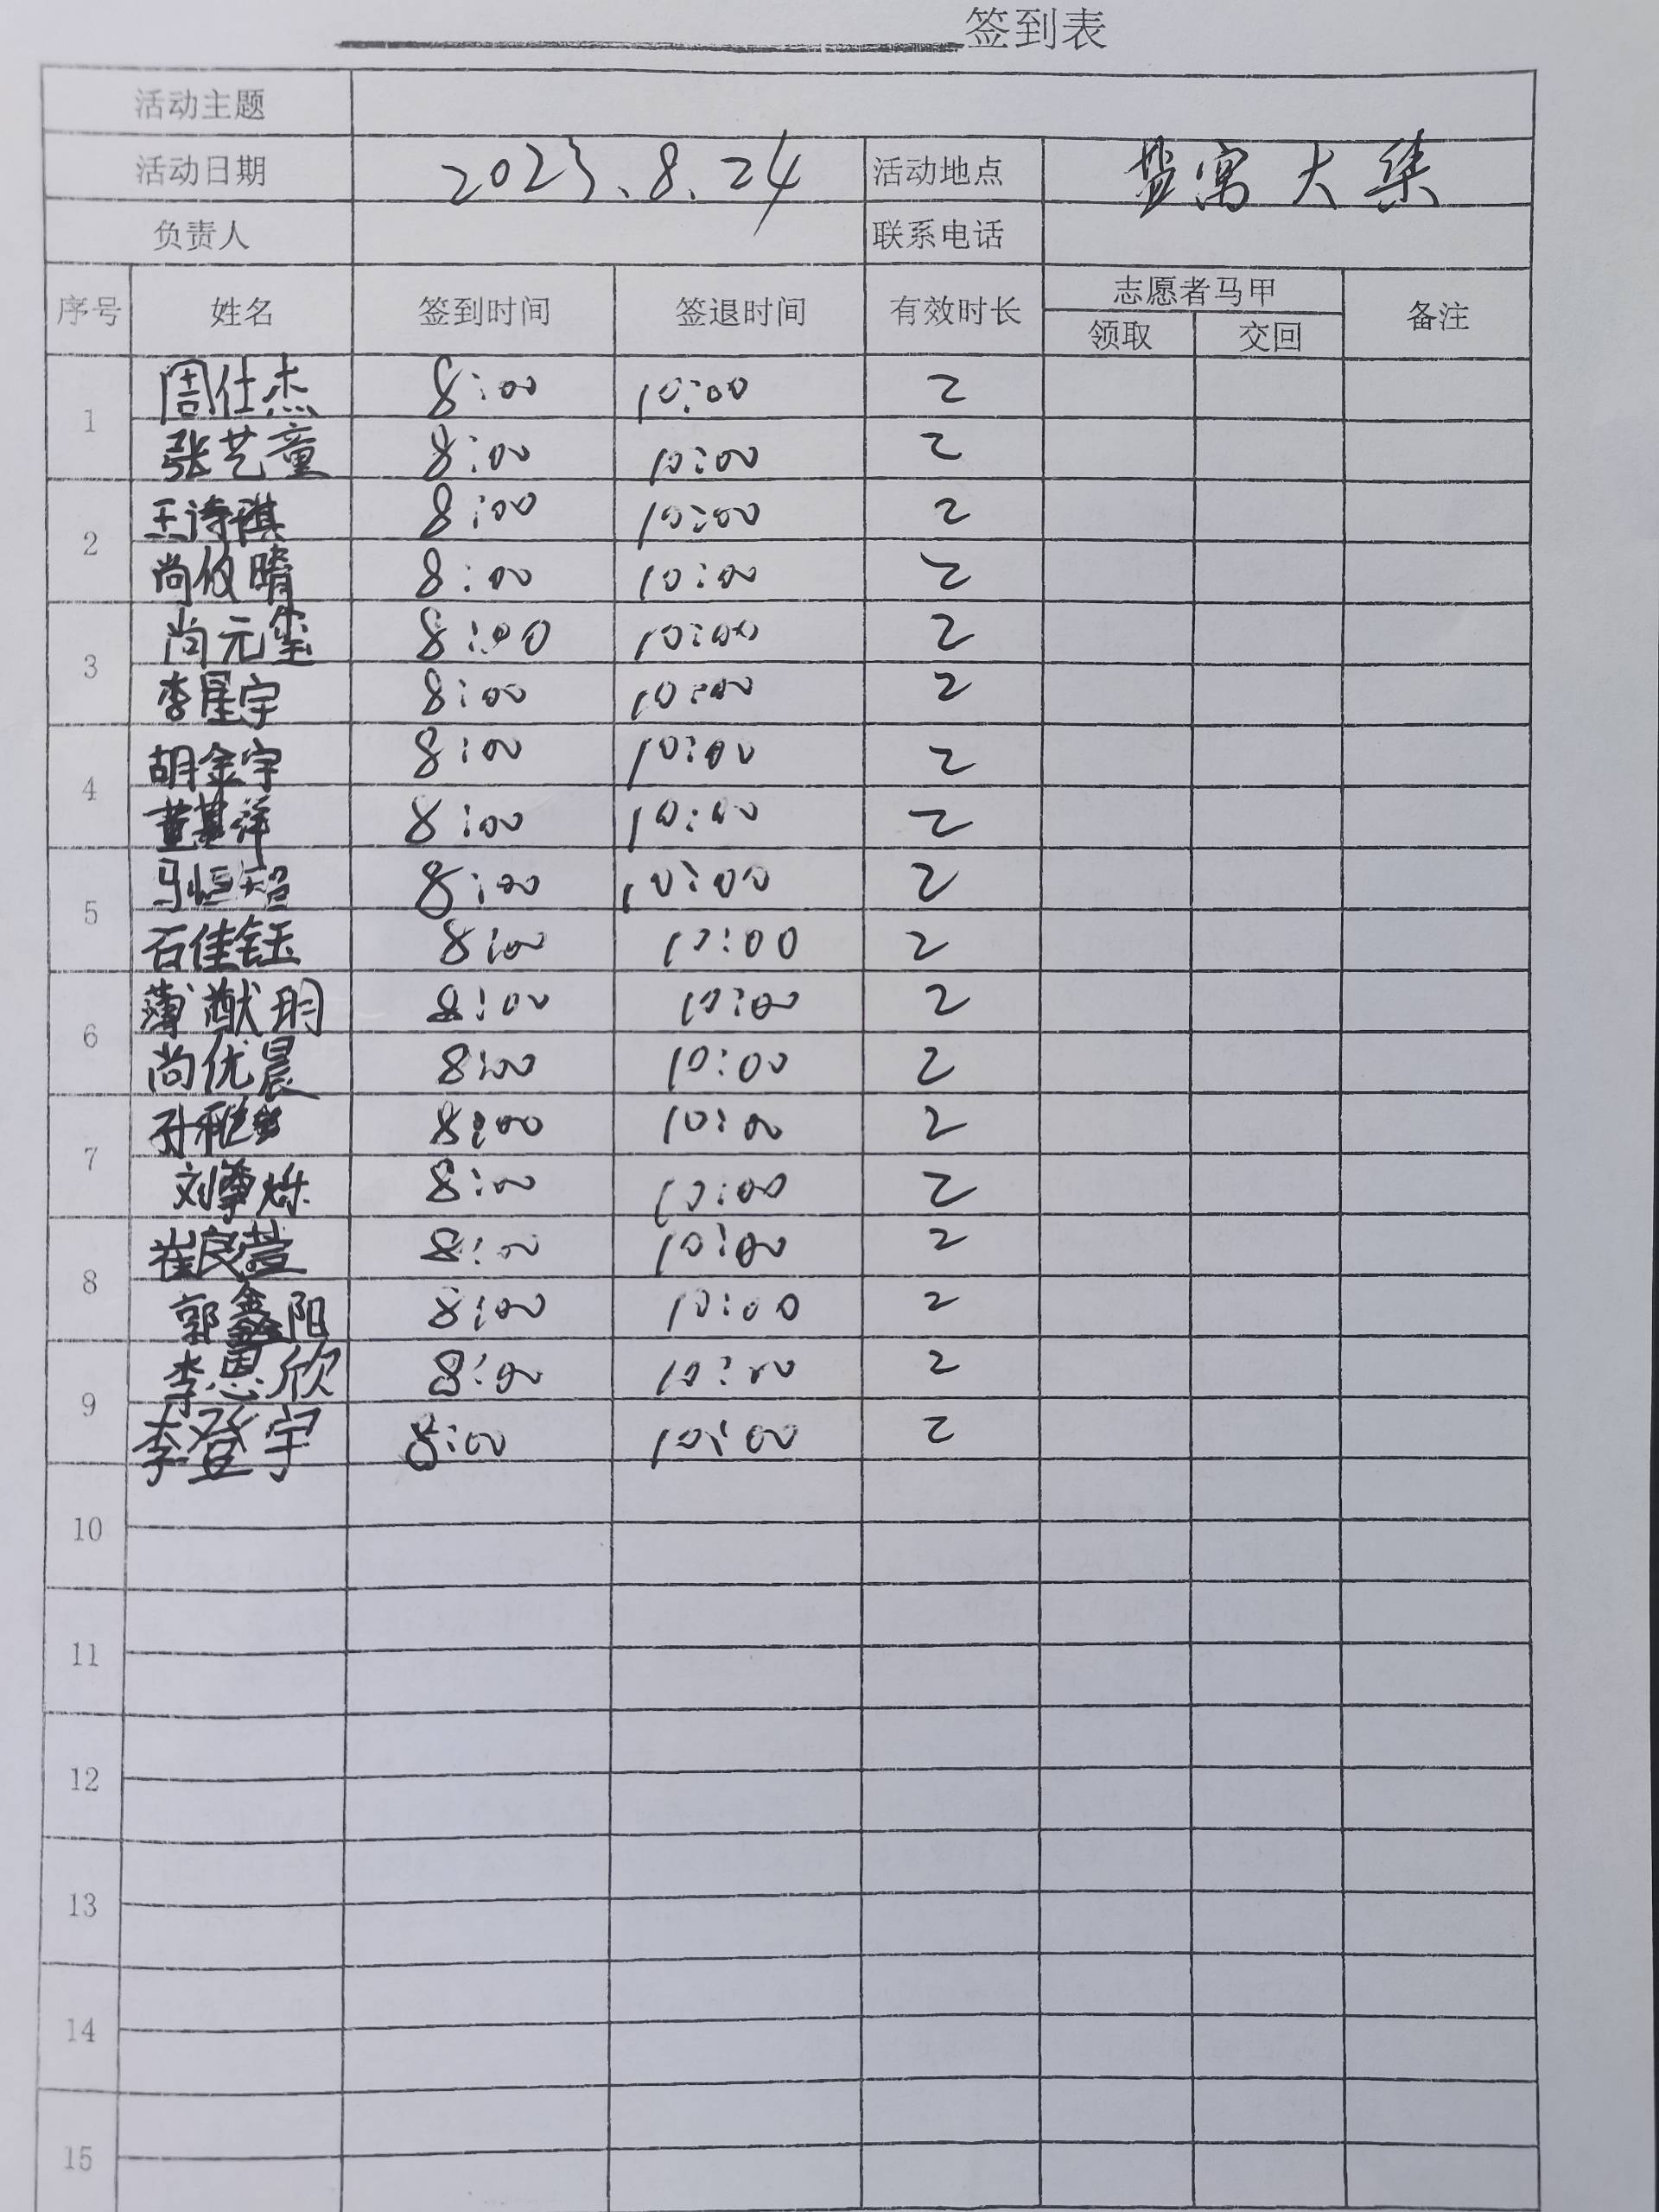 签到表
活动主题
活动日期 2023.8.24 活动地点 盐窝大集
负责人 联系电话
序号 姓名 签到时间 签退时间 有效时长 志愿者马甲 备注
领取 交回
1 周仕杰 8:00 10:00 2
张艺童 8:00 10:00 2
2 王诗琪 8:00 10:00 2
尚攸晴 8:00 10:00 2
3 尚元玺 8:00 10:00 2
李星宇 8:00 10:00 2
4 胡金宇 8:00 10:00 2
董其洋 8:00 10:00 2
5 马恒智 8:00 10:00 2
石佳钰 8:00 10:00 2
6 薄猷玥 8:00 10:00 2
尚优晨 8:00 10:00 2
7 孙雅 8:00 10:00 2
刘尊烁 8:00 10:00 2
8 崔良萱 8:00 10:00 2
郭鑫阳 8:00 10:00 2
9 李思欣 8:00 10:00 2
李登宇 8:00 10:00 2
10
11
12
13
14
15